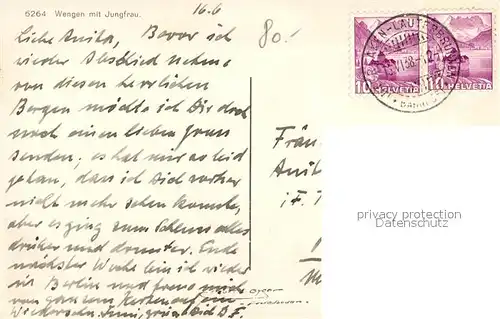 5264 Wengen mit Jungfrau.
16.6
80.-
Liebe Anita, Bevor ich
wieder Abschied nehme
von diesen herrlichen
Bergen möchte ich Dir doch
noch einen lieben Gruss
senden; es hat mir so leid
getan, dass ich Dich vorher
nicht mehr sehen konnte,
aber es ging zum Schluss alles
drüber und drunter. Ende
nächster Woche bin ich wieder
in Berlin und freue mich
von ganzem Herzen auf ein
Wiedersehn.
INTERLAKEN-LAUTERBRUNNEN
VI.38
BAHN
10 HELVETIA
10 HELVETIA
Frän
Anit
privacy protection
DARKSTAR